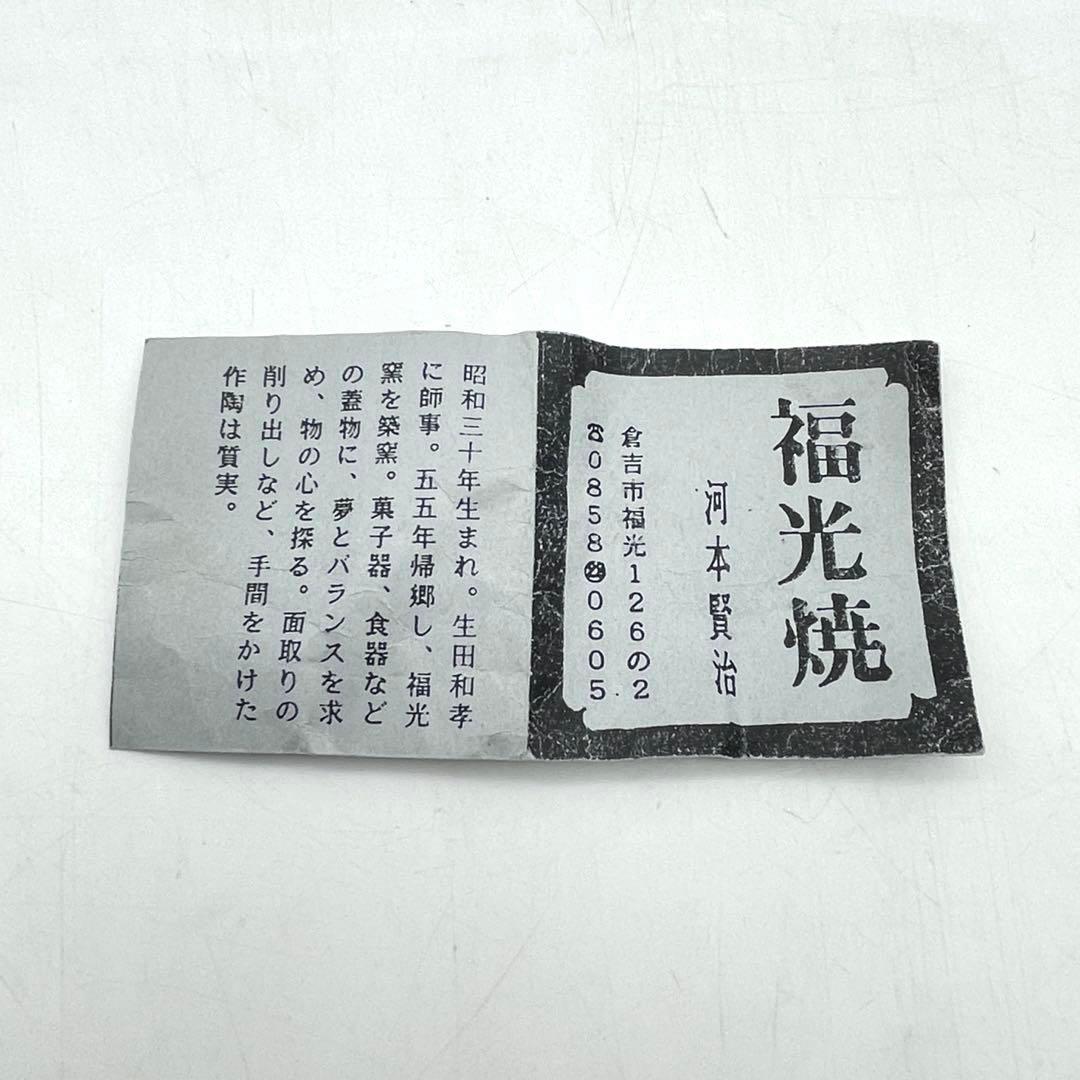 福光焼
河本賢治
倉吉市福光126の2
☎0858㉘0605
昭和三十年生まれ。生田和孝
に師事。五五年帰郷し、福光
窯を築窯。菓子器、食器など
の蓋物に、夢とバランスを求
め、物の心を探る。面取りの
削り出しなど、手間をかけた
作陶は質実。